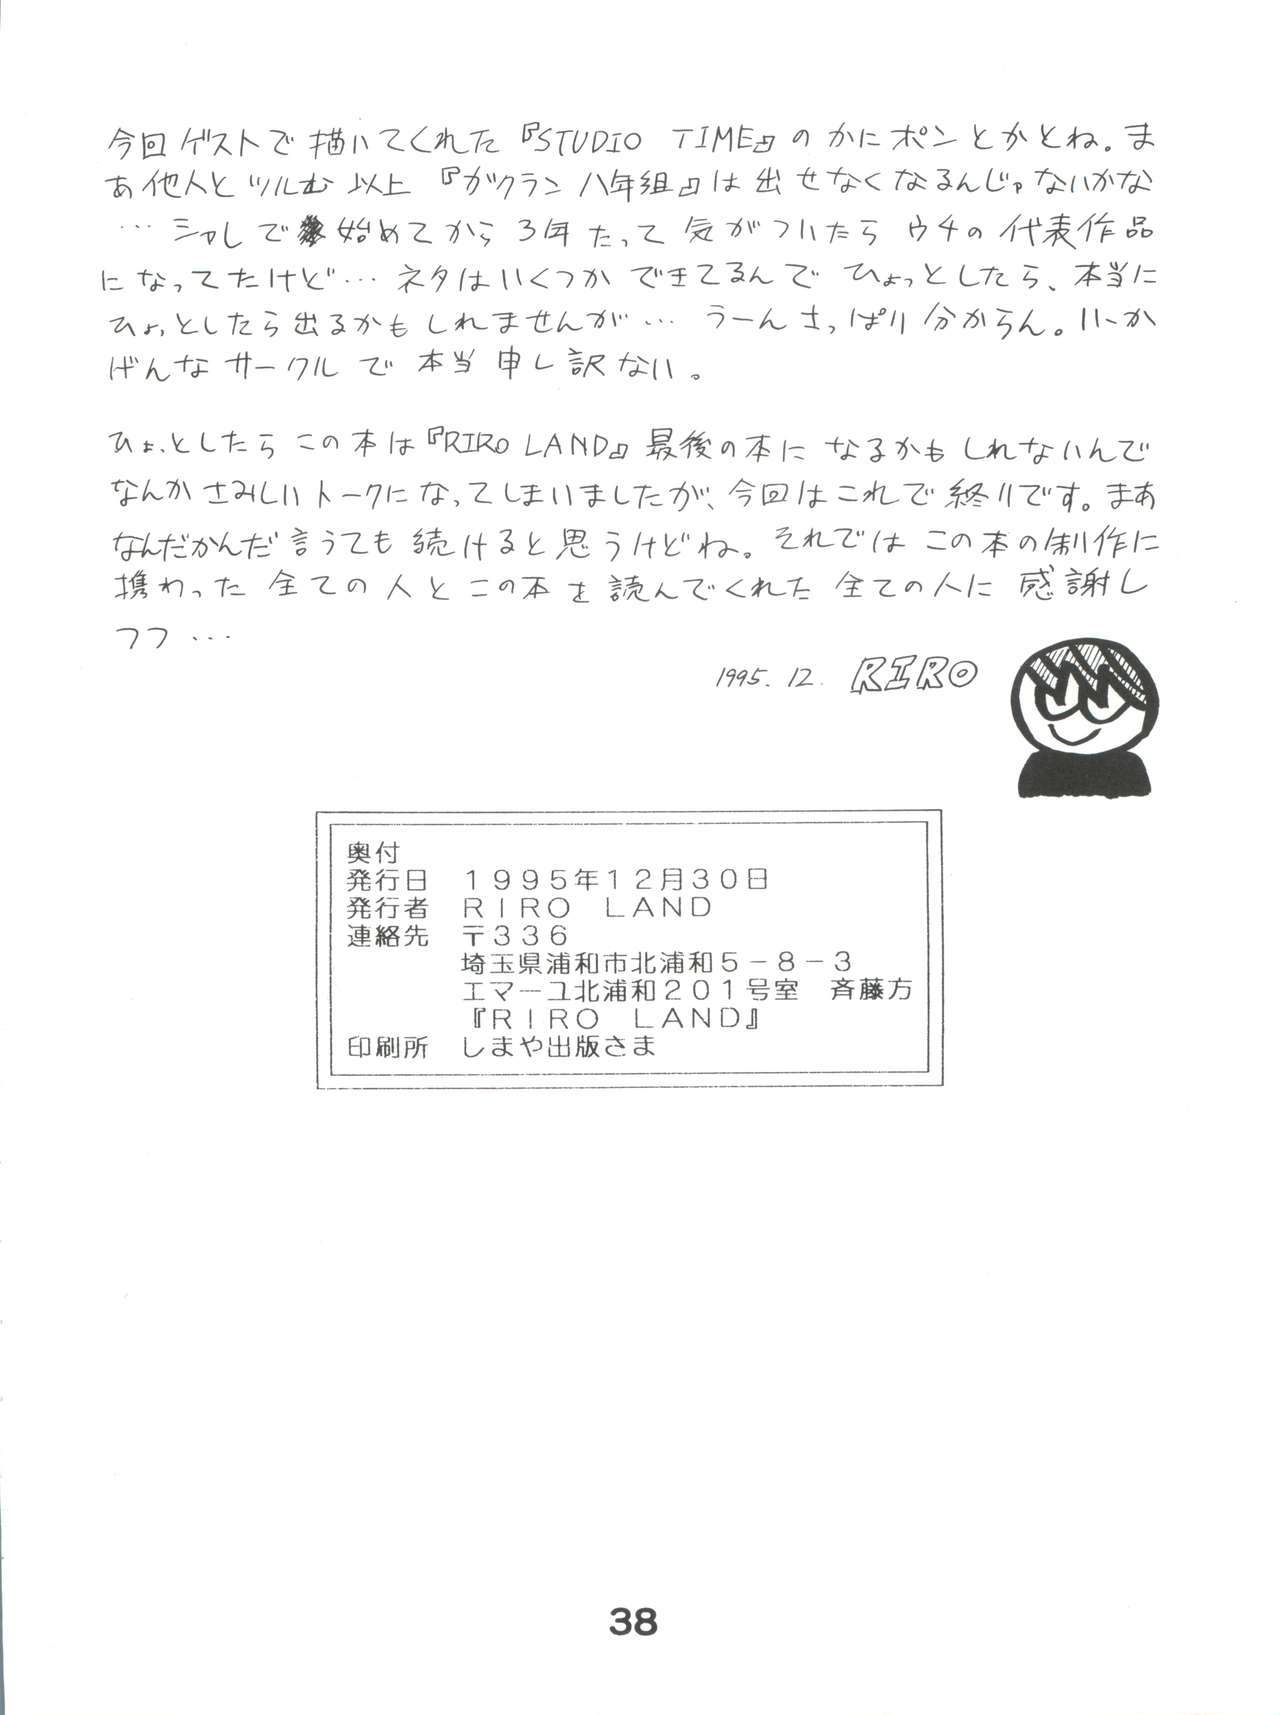 今回ゲストで描いてくれた『STUDIO TIME』のかにポンとかとね。ま
あ他人とツルむ以上『ガクラン八年組』は出せなくなるんじゃないかな
…シャレで始めてから3年たって気がついたらウチの代表作品
になってたけど…ネタはいくつかできてるんでひょっとしたら、本当に
ひょっとしたら出るかもしれませんが…うーんさっぱり分からん。いいか
げんなサークルで本当申し訳ない。
ひょっとしたらこの本は『RIRO LAND』最後の本になるかもしれないんで
なんかさみしいトークになってしまいましたが、今回はこれで終りです。まあ
なんだかんだ言うても続けると思うけどね。それではこの本の制作に
携わった全ての人とこの本を読んでくれた全ての人に感謝し
つつ…
1995.12. RIRO
奥付
発行日 1995年12月30日
発行者 RIRO LAND
連絡先 〒336
埼玉県浦和市北浦和5-8-3
エマーユ北浦和201号室 斉藤方
『RIRO LAND』
印刷所 しまや出版さま
38